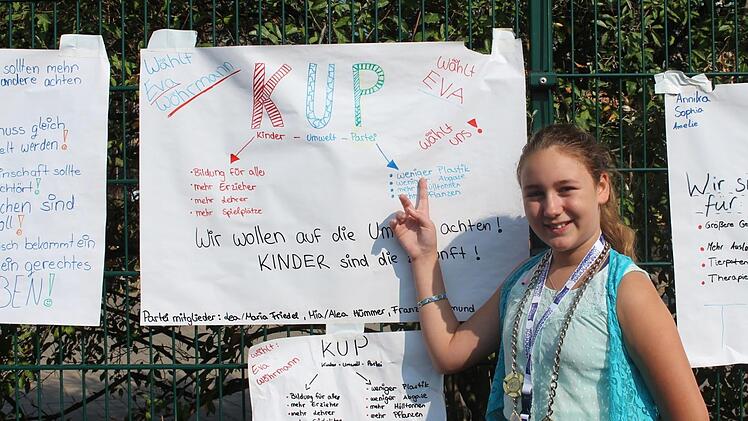 sollten mehr
andere achten
muss gleich
elt werden!
einschaft sollte
chört!
chen sind
oll!
sch bekommt ein
ein gerechtes
BEN!
Wählt
Eva
Wöhrmann
KUP
Kinder - Umwelt - Partei
Wählt
EVA
Wählt
uns!
• Bildung für alle
• mehr Erzieher
• mehr Lehrer
• mehr Spielplätze
• weniger Plastik
• weniger Abgase
• mehr Mülltonnen
• mehr Pflanzen
Wir wollen auf die Um achten!
KINDER sind die unft!
Partei mitglieder: Lea/Maria Friedel, Mia/Alea Hümmer, Franz mund
Wählt:
Eva
Wöhrmann
KUP
Kinder - Umwelt - Partei
• Bildung für alle
• mehr Erzieher
• mehr Lehrer
• weniger Plastik
• weniger Abgase
• mehr Mülltonnen
• mehr Pflanzen
Annika
Sophia
Amelie
Wir si
für
• Größere Ge
• Mehr Auslau
• Tierpaten
• Therapie